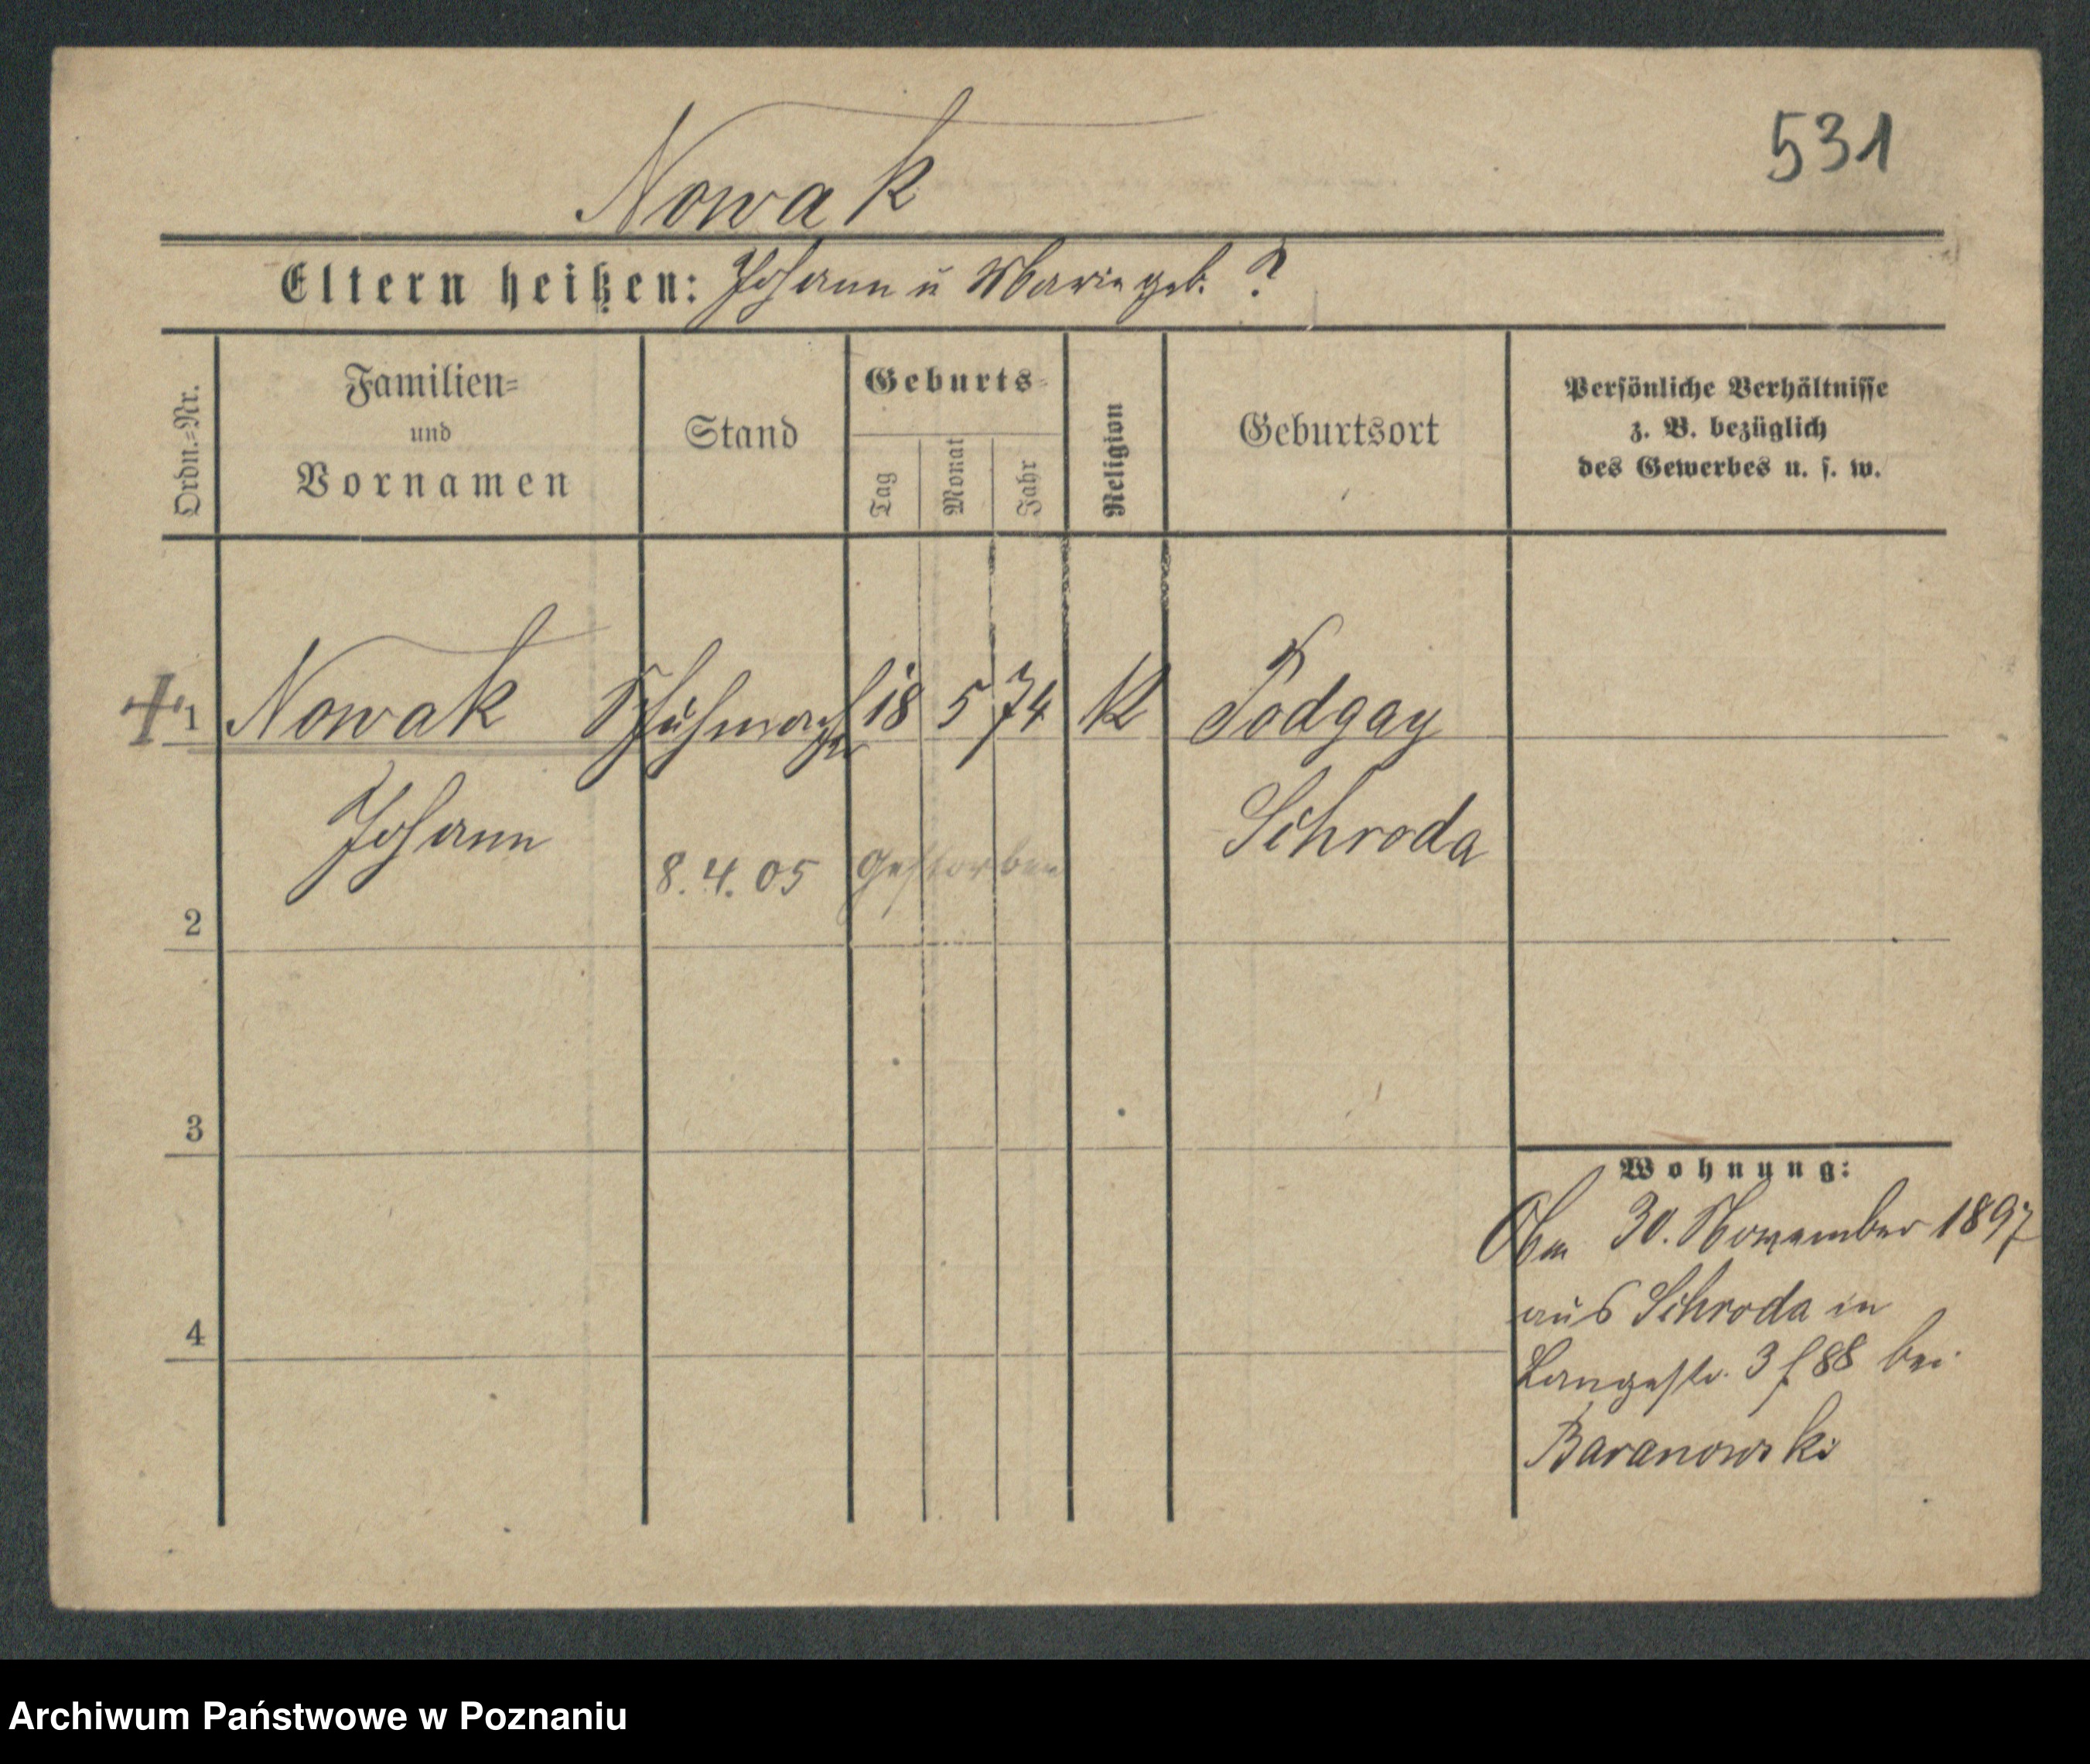 531
Nowak
Eltern heißen: Johann u Marie geb. ?
Ordn.=Nr.
Familien=
und
Vornamen
Stand
Geburts=
Tag
Monat
Jahr
Religion
Geburtsort
Persönliche Verhältnisse
z. B. bezüglich
des Gewerbes u. s. w.
1 Nowak Schuhmacher 18 5 74 K Podgay
Johann Schroda
8.4.05 gestorben
2
3
4
Wohnung:
30. November 1897
aus Schroda in
Langestr. 3 f 88 bei
Baranowski
Archiwum Państwowe w Poznaniu